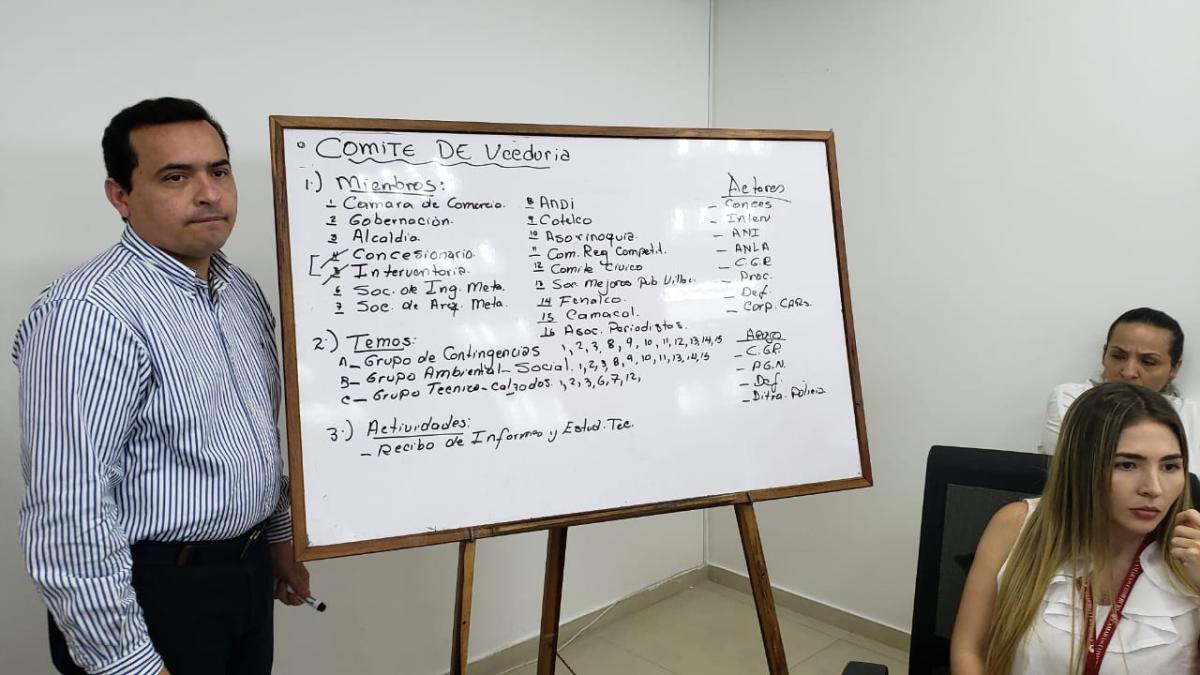 ° COMITE DE Veeduria
1.) Miembros:
1 Camara de Comercio.
2 Gobernación.
3 Alcaldia.
4 Concesionario
5 Interventoria.
6 Soc. de Ing. Meta.
7 Soc. de Arq. Meta.
8 ANDI
9 Cotelco
10 Asorinoquia.
11 Com. Reg Competit.
12 Comite Cívico
13 Soc. Mejoras Pub V/cio.
14 Fenalco.
15 Camacol.
16 Asoc. Periodistas.
Actores
- Conces
- Interv
- ANI
- ANLA
- C.G.R
- Proc.
- Def.
- Corp. CARs.
2.) Temos:
A_ Grupo de Contingencias 1, 2, 3, 8, 9, 10, 11, 12, 13, 14, 15
B- Grupo Ambiental-Social. 1, 2, 3, 8, 9, 10, 11, 13, 14, 15
C- Grupo Tecnico-Calzados. 1, 2, 3, 6, 7, 12,
Apoyo
- C.G.R.
- P.G.N.
- Def.
- Ditra. Policia
3.) Actividades:
- Recibo de Informes y Estud. Tec.